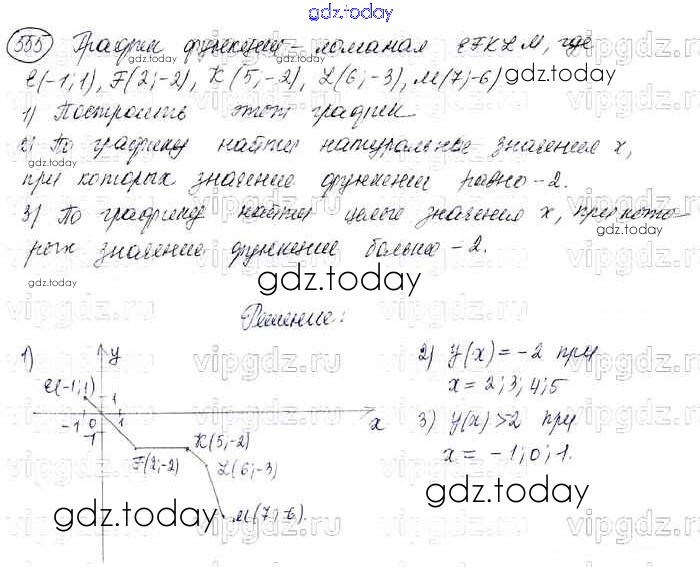 gdz.today
555 График функции – ломаная EFKLM, где
E(-1; 1), F(2; -2), K(5, -2), L(6; -3), M(7; -6)
1) Построить этот график
2) По графику найти натуральные значения x,
при которых значение функции равно -2.
3) По графику найти целые значения x, при кото-
рых значение функции больше -2.
gdz.today
Решение:
1)
y
E(-1; 1)
1
-1 0 1 x
-1
K(5, -2)
F(2; -2)
L(6; -3)
M(7; -6).
2) y(x) = -2 при
x = 2; 3; 4; 5
3) y(x) > 2 при
x = -1; 0; 1.
gdz.today
gdz.today
vipgdz.ru